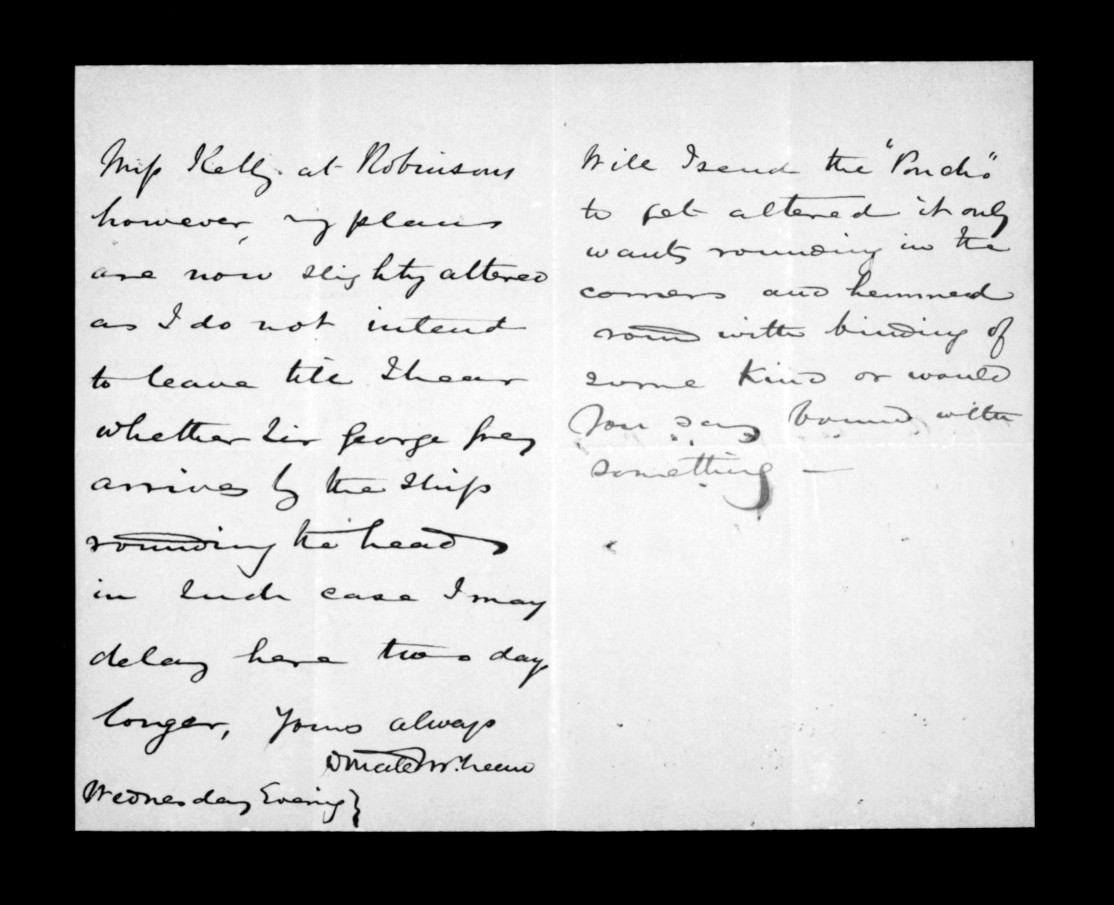 Miss Kelly at Robinsons
however, my plans
are now slightly altered
as I do not intend
to leave till I hear
whether Sir George Grey
arrives by the ship
rounding the head
in such case I may
delay here two days
longer, Yours always
Donald McLean
Wednesday Evening}
Will I send the "Poncho"
to get altered it only
wants rounding in the
corners and hemmed
round with binding of
some kind or would
you say bound with
something —